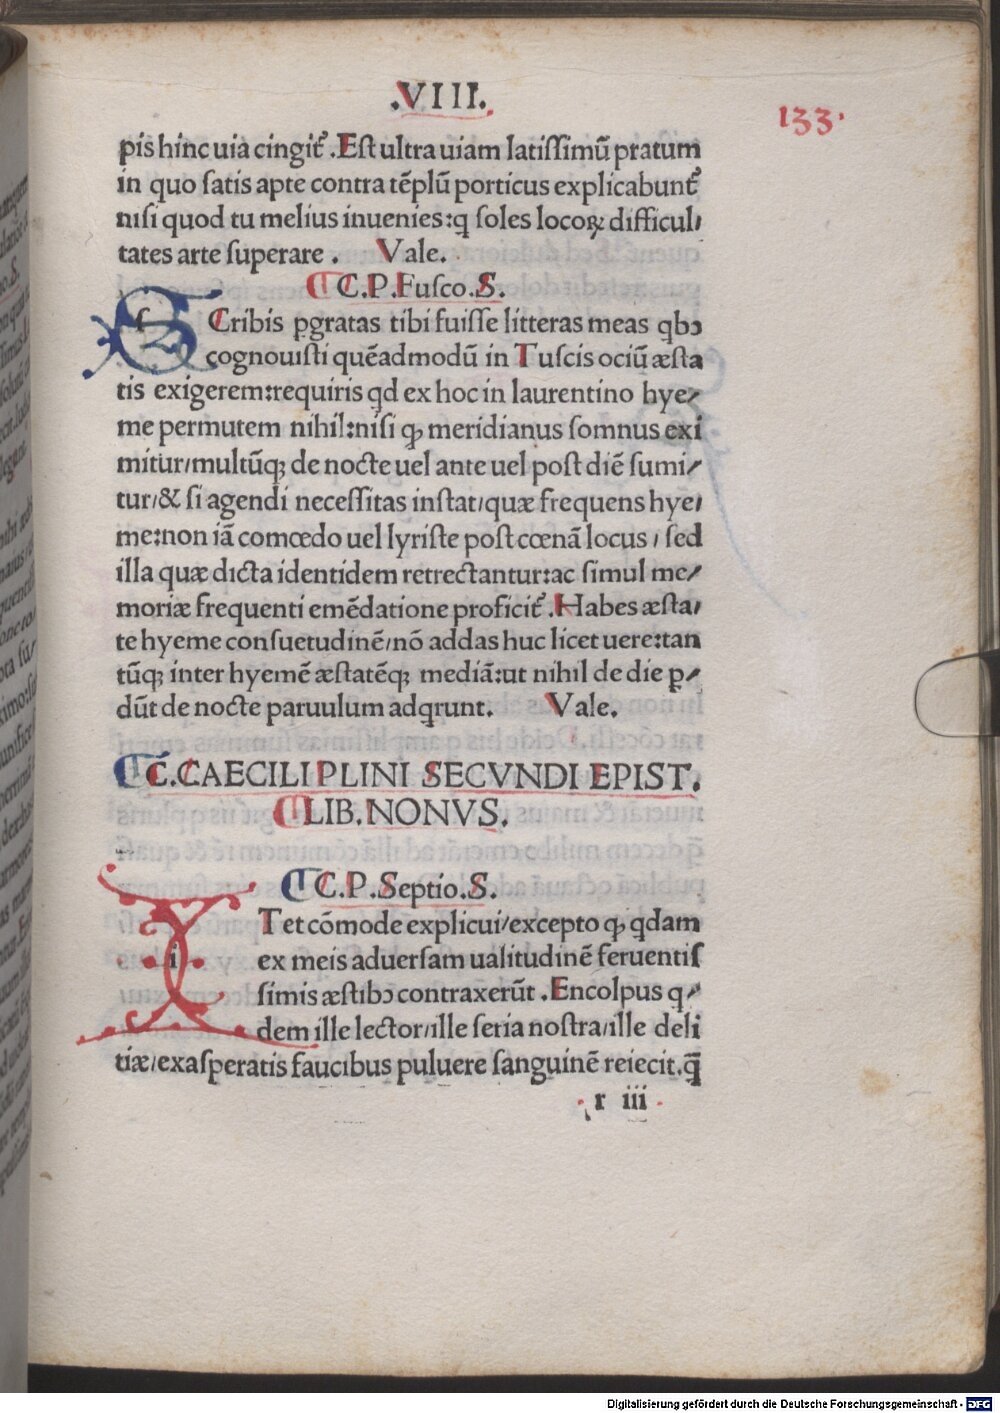 .VIII.
133.
pis hinc uia cingit᷒ .Est ultra uiam latissimū pratum
in quo satis apte contra tēplū porticus explicabunt᷒
nisi quod tu melius inuenies:q soles locoꝝ difficul/
tates arte superare . Vale.
C.P.Fusco.S.
SCribis ꝑgratas tibi fuisse litteras meas qbꝰ
cognouisti quēadmodū in Tuscis ociū æsta
tis exigerem:requiris qd ex hoc in laurentino hye/
me permutem nihil:nisi ꝙ meridianus somnus exi
mitur/multūqꝫ de nocte uel ante uel post diē sumi/
tur/& si agendi necessitas instat/quæ frequens hye/
me:non iā comœdo uel lyriste post cœnā locus / sed
illa quæ dicta identidem retrectantur:ac simul me/
moriæ frequenti emēdatione proficit᷒ .Habes æsta/
te hyeme consuetudinē/nō addas huc licet uere:tan
tūqꝫ inter hyemē æstatēqꝫ mediā:ut nihil de die ꝑ/
dūt de nocte paruulum adqrunt. Vale.
C.CAECILI PLINI SECVNDI EPIST.
LIB.NONVS.
C.P.Septio.S.
ITet cōmode explicui/excepto ꝙ qdam
ex meis aduersam ualitudinē feruentis
simis æstibꝰ contraxerūt .Encolpus q/
dem ille lector/ille seria nostra/ille deli
tiæ/exasperatis faucibus puluere sanguinē reiecit.q̄
r iii
Digitalisierung gefördert durch die Deutsche Forschungsgemeinschaft - DFG